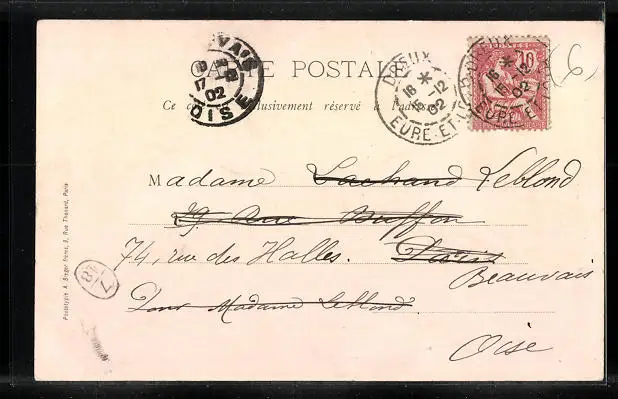 CARTE POSTALE
Ce côté exclusivement réservé à l'adresse
BEAUVAIS 17 02 OISE
DREUX 16 * 15 -12 02 EURE-ET-
16 * 15 -12 02 EURE-ET-
POSTES 10
(6
Madame Lachaud Leblond
79 Rue Buffon
74, rue des Halles. Paris
Beauvais
Pour Madame Leblond
Oise
Phototypie A. Breger frères, 9, Rue Thénard, Paris